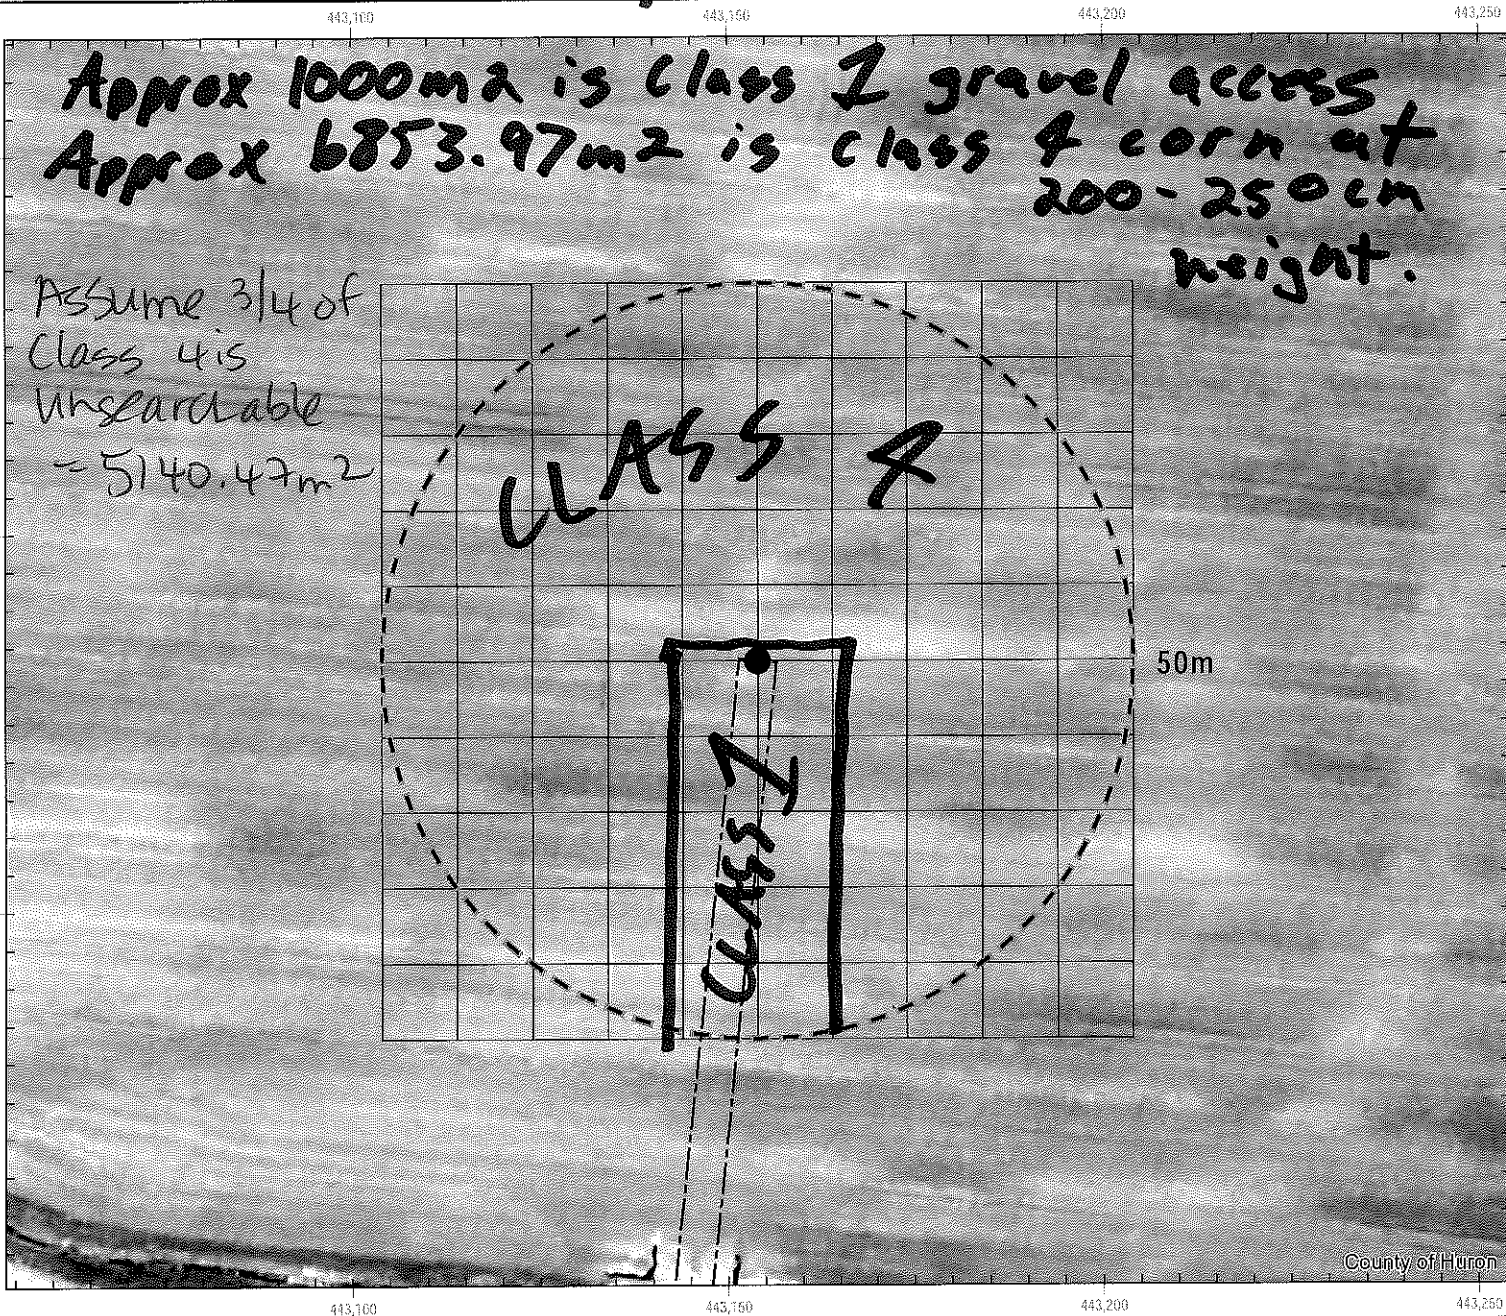 443,100 443,150 443,200 443,250
Approx 1000m2 is Class 1 gravel access,
Approx 6853.97m2 is class 4 corn at
200-250cm
height.
Assume 3/4 of
Class 4 is
Unsearchable
- 5140.47m2
CLASS 4
50m
CLASS 1
County of Huron
443,100 443,150 443,200 443,250